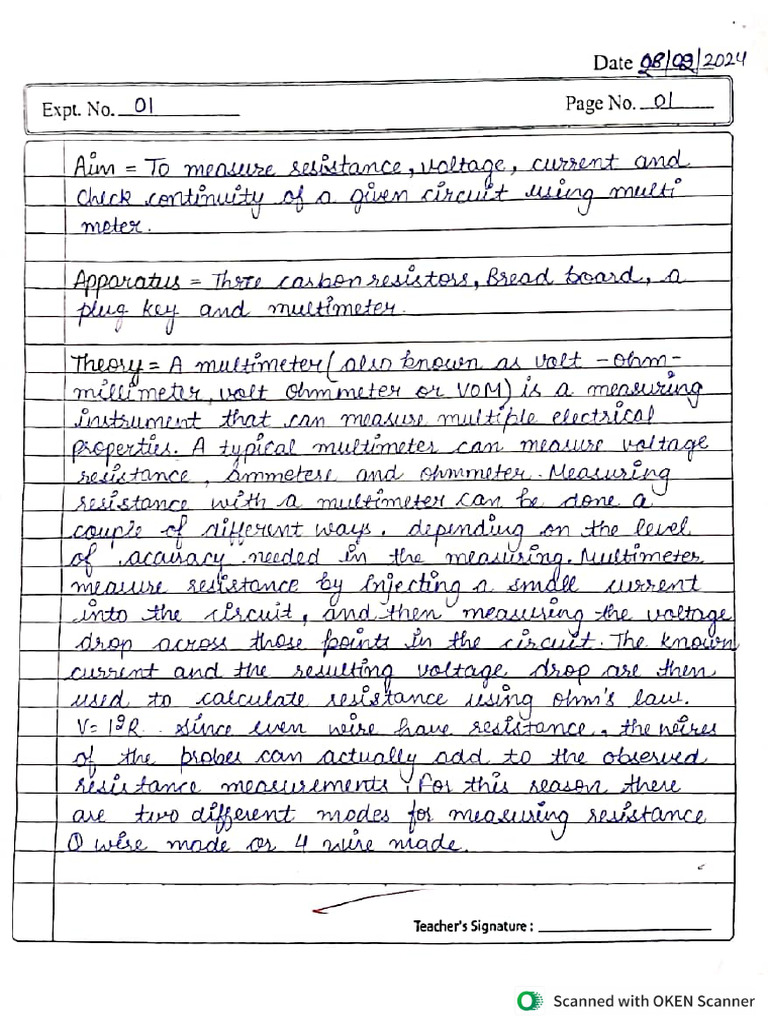 Date 08/02/2024
Expt. No. 01
Page No. 01
Aim = To measure resistance, voltage, current and
check continuity of a given circuit using multi
meter.
Apparatus = Three carbon resistors, Bread board, a
plug key and multimeter.
Theory = A multimeter (also known as volt -ohm-
millimeter, volt ohmmeter or VOM) is a measuring
instrument that can measure multiple electrical
properties. A typical multimeter can measure voltage
resistance, ammetere and ohmmeter. Measuring
resistance with a multimeter can be done a
couple of different ways. depending on the level
of accuracy needed in the measuring. Multimeter
measure resistance by injecting a small current
into the circuit, and then measuring the voltage
drop across those points in the circuit. The known
current and the resulting voltage drop are then
used to calculate resistance using ohm's law.
V= I²R. Since even wire have resistance, the wires
of the probes can actually add to the observed
resistance measurements. For this reason there
are two different modes for measuring resistance
wire made or 4 wire made.
Teacher's Signature :
Scanned with OKEN Scanner